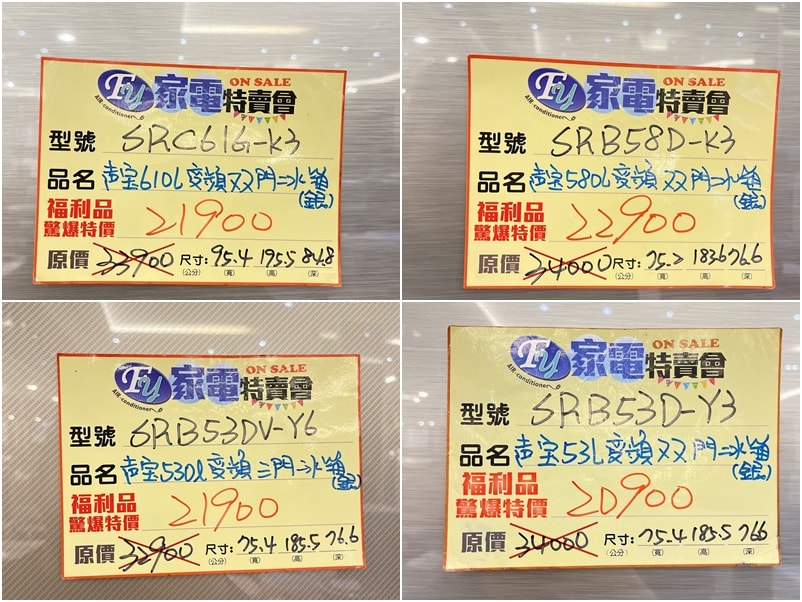 FY 家電特賣會 ON SALE
AIR-conditioner
型號 SRC61G-K3
品名 声宝610L变頻双門冰箱
(銀)
福利品
驚爆特價 21900
原價 33900 尺寸: 95.4 195.5 84.8
(公分) (寬) (高) (深)
FY 家電特賣會 ON SALE
AIR-conditioner
型號 SRB58D-K3
品名 声宝580L变頻双門冰箱
(銀)
福利品
驚爆特價 22900
原價 34000 尺寸: 75.2 183.6 76.6
(公分) (寬) (高) (深)
FY 家電特賣會 ON SALE
AIR-conditioner
型號 SRB53DV-Y6
品名 声宝530l变頻三門冰箱
(銀)
福利品
驚爆特價 21900
原價 32900 尺寸: 75.4 185.5 76.6
(公分) (寬) (高) (深)
FY 家電特賣會 ON SALE
AIR-conditioner
型號 SRB53D-Y3
品名 声宝53L变頻双門冰箱
(銀)
福利品
驚爆特價 20900
原價 34000 尺寸: 75.4 185.5 766
(公分) (寬) (高) (深)